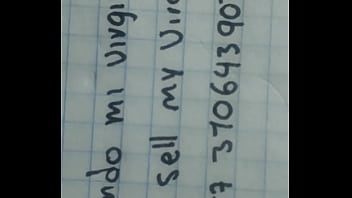 ndo mi virgi
sell my vir
7 31064390